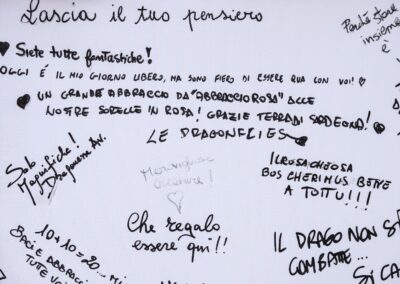 Lascia il tuo pensiero
Perché stare
insieme
è
♥ Siete tutte fantastiche!
OGGI É IL MIO GIORNO LIBERO, MA SONO FIERO DI ESSERE QUA CON VOI! ♥
♥ UN GRANDE ABBRACCIO DA "ABBRACCIOROSA" ALLE
NOSTRE SORELLE IN ROSA! GRAZIE TERRA DI SARDEGNA! ♥
LE DRAGONFLIES
Solo
Magnifiche!
Dragonesse AV.
Meravigliose
creature!
ILROSACHEOSA
BOS CHERIMUS BENE
A TOTTU!!!
Che regalo
essere qui!!
10+10=20...
BACI E ABBRACCI
TUTTE VOI
IL DRAGO NON SI
COMBATTE...
SI CA